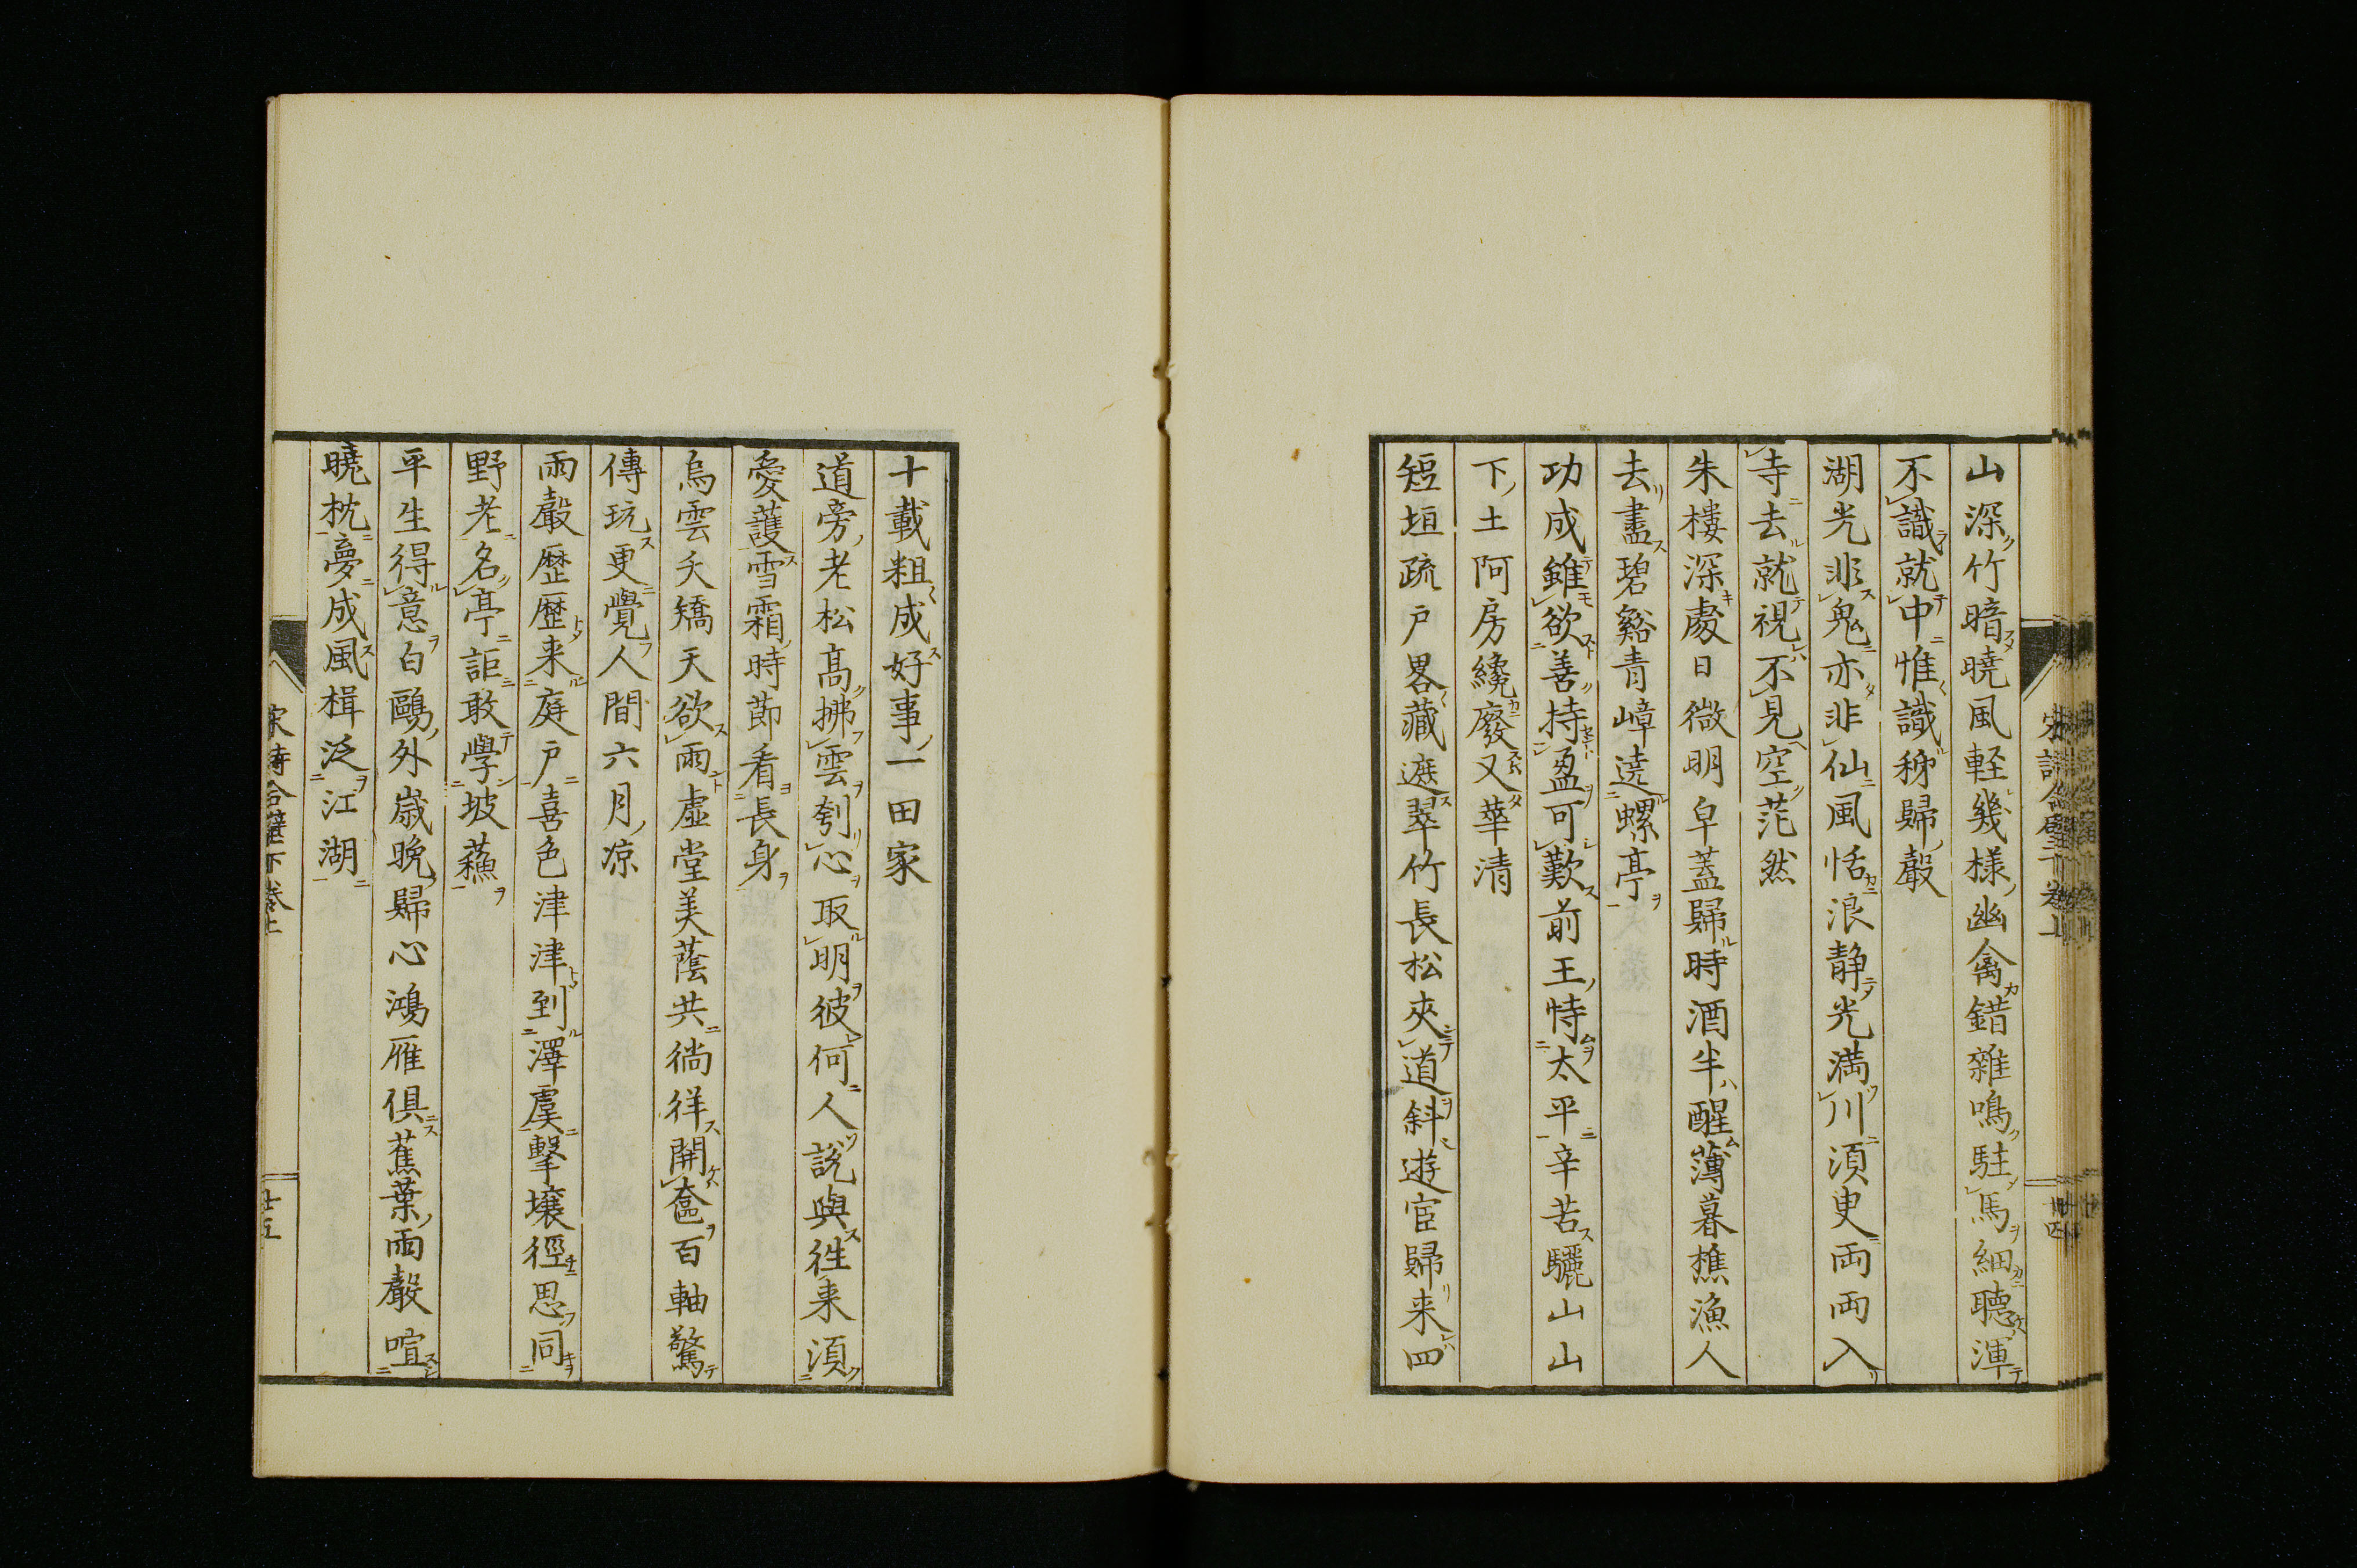 山深竹暗曉風軽幾様幽禽錯雜鳴駐馬細聽渾
不識就中惟識稊歸聲
湖光非鬼亦非仙風恬浪静光満川湏臾両両入
寺去就視不見空茫然
朱樓深處日微明皁蓋歸時酒半醒薄暮樵漁人
去盡碧谿青嶂遶螺亭
功成雖欲善持盈可歎前王恃太平辛苦驪山山
下土阿房纔廢又華清
短垣疏戸畧藏遮翠竹長松夾道斜遊宦歸来四
十載粗成好事一田家
道旁老松髙拂雲刳心取明彼何人説與徃来湏
愛護雪霜時節看長身
烏雲夭矯天欲雨虛堂美蔭共徜徉開奩百軸驚
傳玩更覺人間六月凉
雨聲歴歴来庭戸喜色津津到澤虞擊壤徑思同
野老名亭詎敢學坡蘓
平生得意白鷗外嵗晩歸心鴻雁俱蕉葉雨聲喧
曉枕夢成風楫泛江湖
宋詩合璧下卷上
廿五